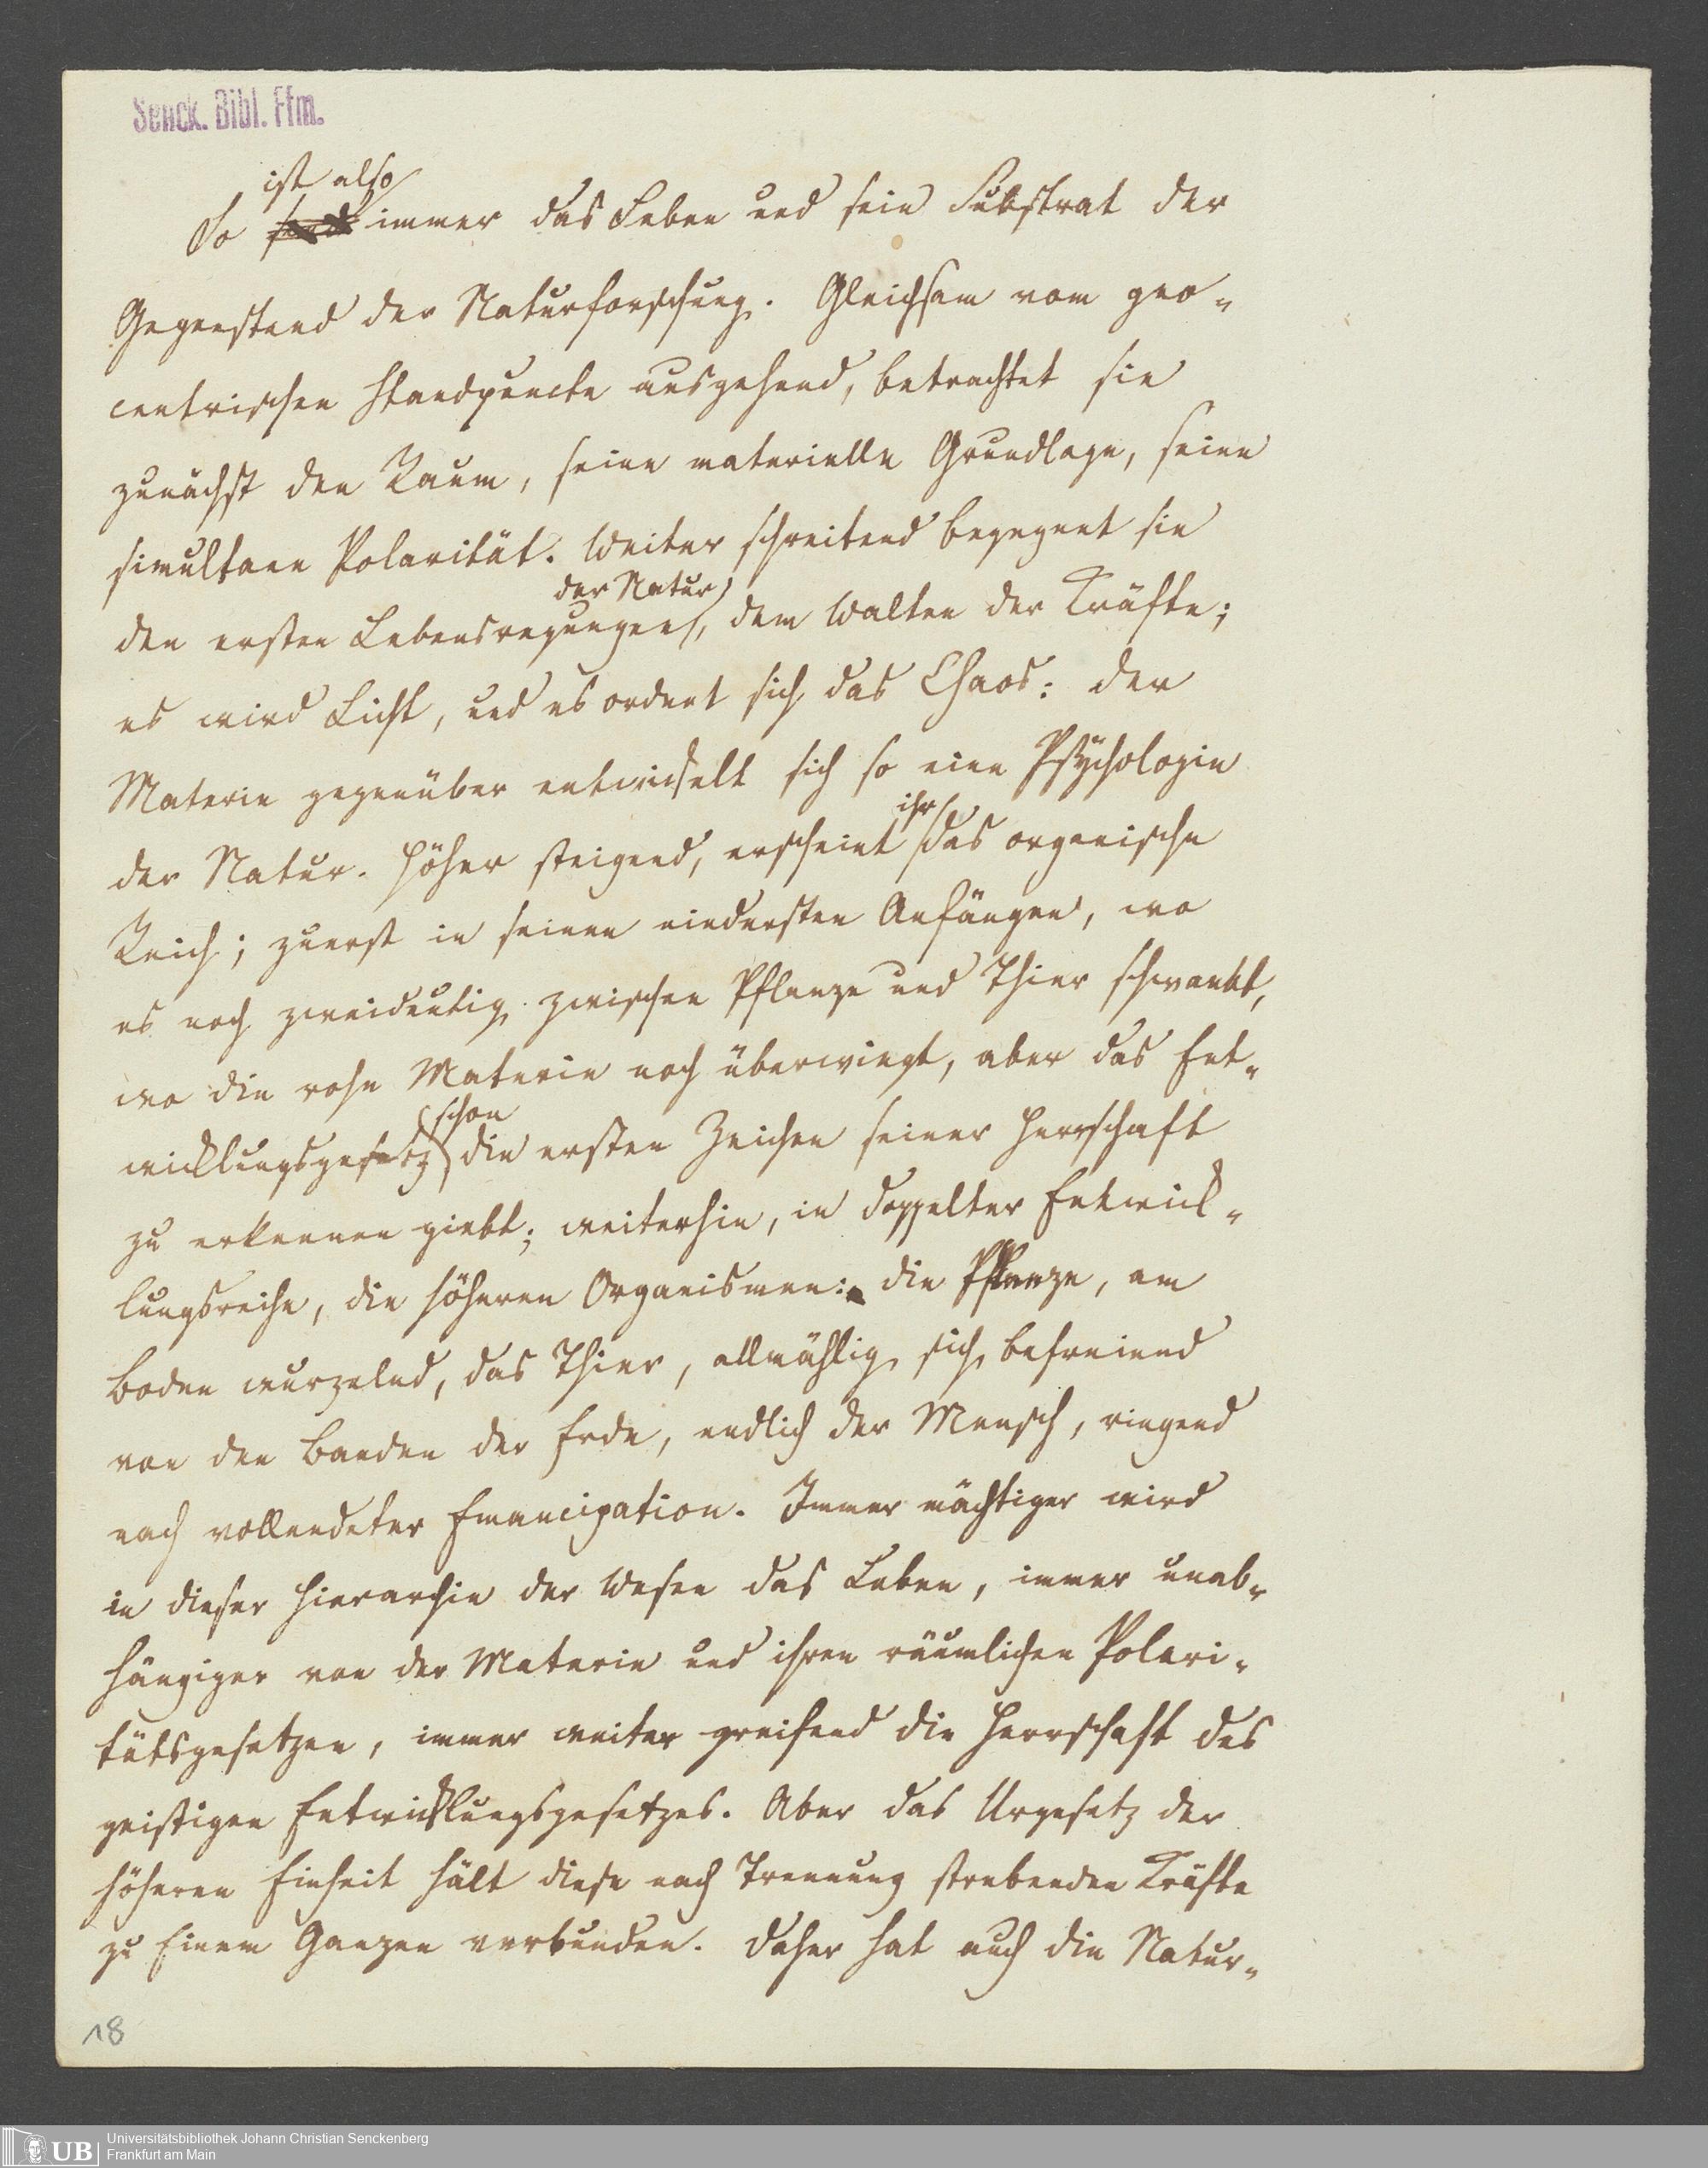 Senck. Bibl. Ffm.
ist also
So immer das Leben und sein Substrat der
Gegenstand der Naturforschung. Gleichsam vom geo-
centrischen Standpuncte ausgehend, betrachtet sie
zunächst den Raum, seine materielle Grundlage, seine
simultane Polarität. Weiter schreitend begegnet sie
der Natur
den ersten Lebensregungen, dem Walten der Kräfte;
es wird Licht, und es ordnet sich das Chaos: der
Materie gegenüber entwickelt sich so eine Psychologie
ihr
der Natur. Höher steigend, erscheint das organische
Reich; zuerst in seinen niedersten Anfängen, wo
es noch zweideutig zwischen Pflanze und Thier schwankt,
wo die rohe Materie noch überwiegt, aber das Ent-
schon
wicklungsgesetz die ersten Zeichen seiner Herrschaft
zu erkennen giebt; weiterhin, in doppelter Entwick-
lungsreihe, die höheren Organismen: die Pflanze, am
Boden wurzelnd, das Thier, allmählig sich befreiend
von den Banden der Erde, endlich der Mensch, ringend
nach vollendeter Emancipation. Immer mächtiger wird
in dieser Hierarchie der Wesen das Leben, immer unab-
hängiger von der Materie und ihren räumlichen Polari-
tätsgesetzen, immer weiter greifend die Herrschaft des
geistigen Entwicklungsgesetzes. Aber das Urgesetz der
höheren Einheit hält diese nach Trennung strebenden Kräfte
zu Einem Ganzen verbunden. Daher hat auch die Natur-
18
UB
Universitätsbibliothek Johann Christian Senckenberg
Frankfurt am Main